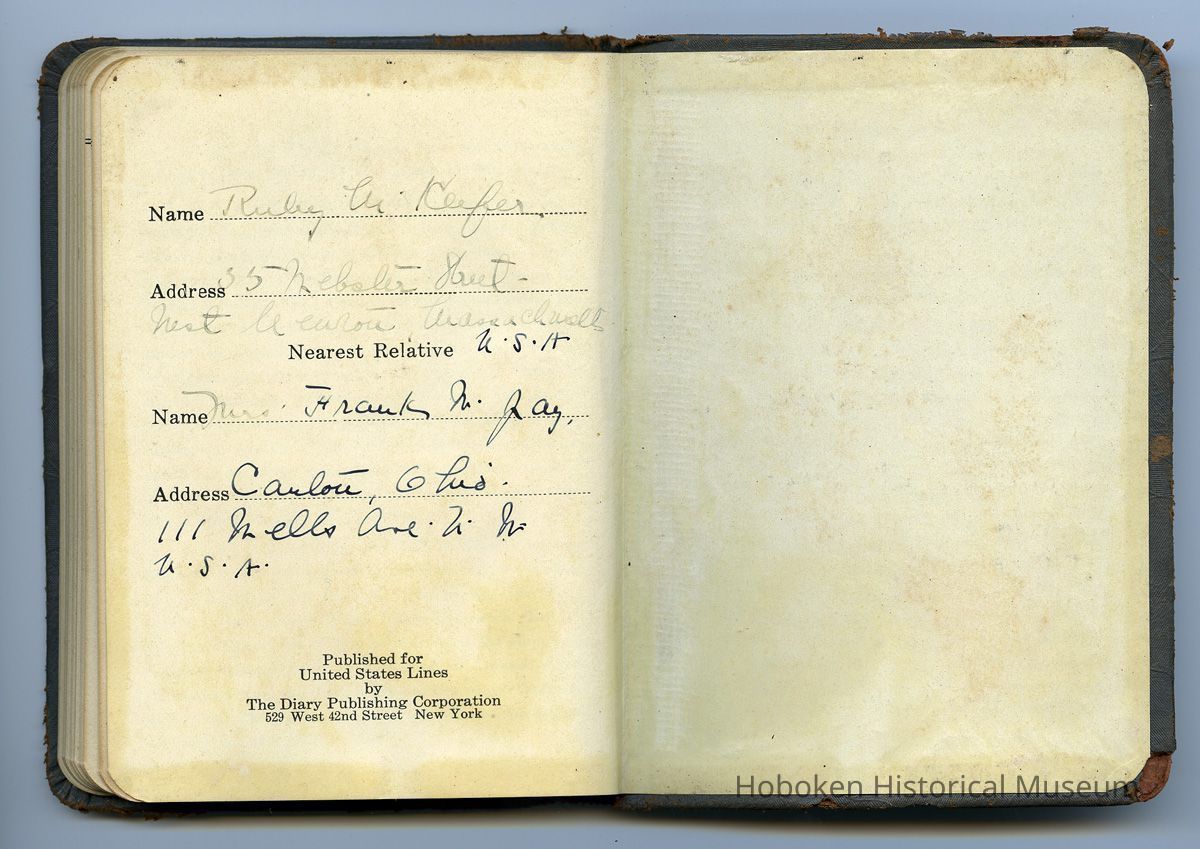 Name Ruby M Keefer.
Address 35 Webster Street -
West Newton, Massachusetts
Nearest Relative U.S.A
Name Mrs. Frank W. Jay,
Address Canton, Ohio.
111 Wells Ave. N. W
U.S.A.
Published for
United States Lines
by
The Diary Publishing Corporation
529 West 42nd Street New York
Hoboken Historical Museum